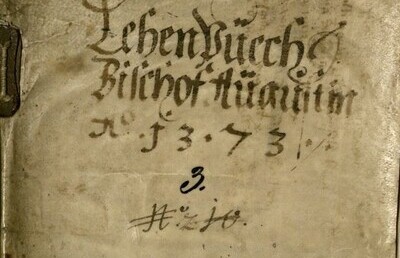 Lehenpüech
Bischof Augustin
No. 1373.
3.
No 210.